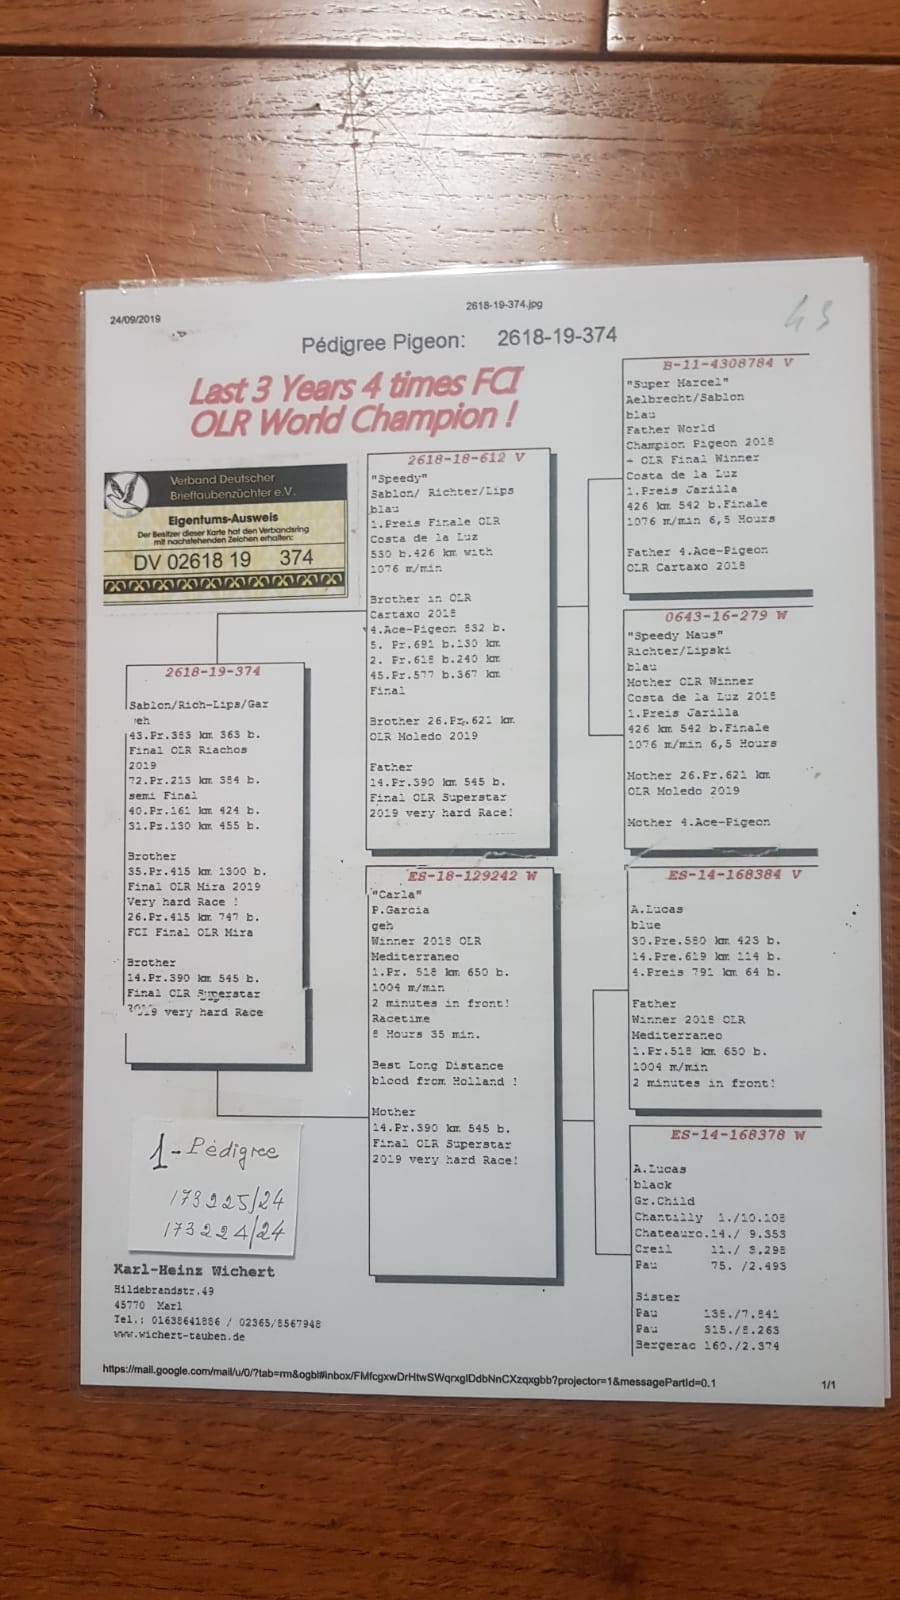 24/09/2019
2618-19-374.jpg
43
Pédigree Pigeon: 2618-19-374
Last 3 Years 4 times FCI
OLR World Champion !
Verband Deutscher
Brieftaubenzüchter e.V.
Eigentums-Ausweis
Der Besitzer dieser Karte hat den Verbandsring
mit nachstehenden Zeichen erhalten:
DV 02618 19 374
2618-19-374
Sablon/Rich-Lips/Gar
geh
43.Pr.383 km 363 b.
Final OLR Riachos
2019
72.Pr.213 km 384 b.
semi Final
40.Pr.161 km 424 b.
31.Pr.130 km 455 b.
Brother
35.Pr.415 km 1300 b.
Final OLR Mira 2019
Very hard Race !
26.Pr.415 km 747 b.
FCI Final OLR Mira
Brother
14.Pr.390 km 545 b.
Final OLR Superstar
2019 very hard Race
2618-18-612 V
"Speedy"
Sablon/ Richter/Lips
blau
1.Preis Finale OLR
Costa de la Luz
530 b.426 km with
1076 m/min
Brother in OLR
Cartaxo 2018
4.Ace-Pigeon 532 b.
5. Pr.691 b.130 km
2. Pr.618 b.240 km
45.Pr.577 b.367 km
Final
Brother 26.Pr.621 km
OLR Moledo 2019
Father
14.Pr.390 km 545 b.
Final OLR Superstar
2019 very hard Race!
ES-18-129242 W
"Carla"
P.Garcia
geh
Winner 2018 OLR
Mediterraneo
1.Pr. 518 km 650 b.
1004 m/min
2 minutes in front!
Racetime
8 Hours 35 min.
Best Long Distance
blood from Holland !
Mother
14.Pr.390 km 545 b.
Final OLR Superstar
2019 very hard Race!
B-11-4308784 V
"Super Marcel"
Aelbrecht/Sablon
blau
Father World
Champion Pigeon 2018
+ OLR Final Winner
Costa de la Luz
1.Preis Jarilla
426 km 542 b.Finale
1076 m/min 6,5 Hours
Father 4.Ace-Pigeon
OLR Cartaxo 2018
0643-16-279 W
"Speedy Maus"
Richter/Lipski
blau
Mother OLR Winner
Costa de la Luz 2018
1.Preis Jarilla
426 km 542 b.Finale
1076 m/min 6,5 Hours
Mother 26.Pr.621 km
OLR Moledo 2019
Mother 4.Ace-Pigeon
ES-14-168384 V
A.Lucas
blue
30.Pre.580 km 423 b.
14.Pre.619 km 114 b.
4.Preis 791 km 64 b.
Father
Winner 2018 OLR
Mediterraneo
1.Pr.518 km 650 b.
1004 m/min
2 minutes in front!
ES-14-168378 W
A.Lucas
black
Gr.Child
Chantilly 1./10.108
Chateauro.14./ 9.353
Creil 11./ 3.298
Pau 75. /2.493
Sister
Pau 138./7.841
Pau 315./8.263
Bergerac 160./2.374
1- Pédigree
173225/24
173224/24
Karl-Heinz Wichert
Hildebrandstr.49
45770 Marl
Tel.: 01638641886 / 02365/8567948
www.wichert-tauben.de
https://mail.google.com/mail/u/0/?tab=rm&ogbl#inbox/FMfcgxwDrHtwSWqrxglDdbNnCXzqxgbb?projector=1&messagePartId=0.1
1/1